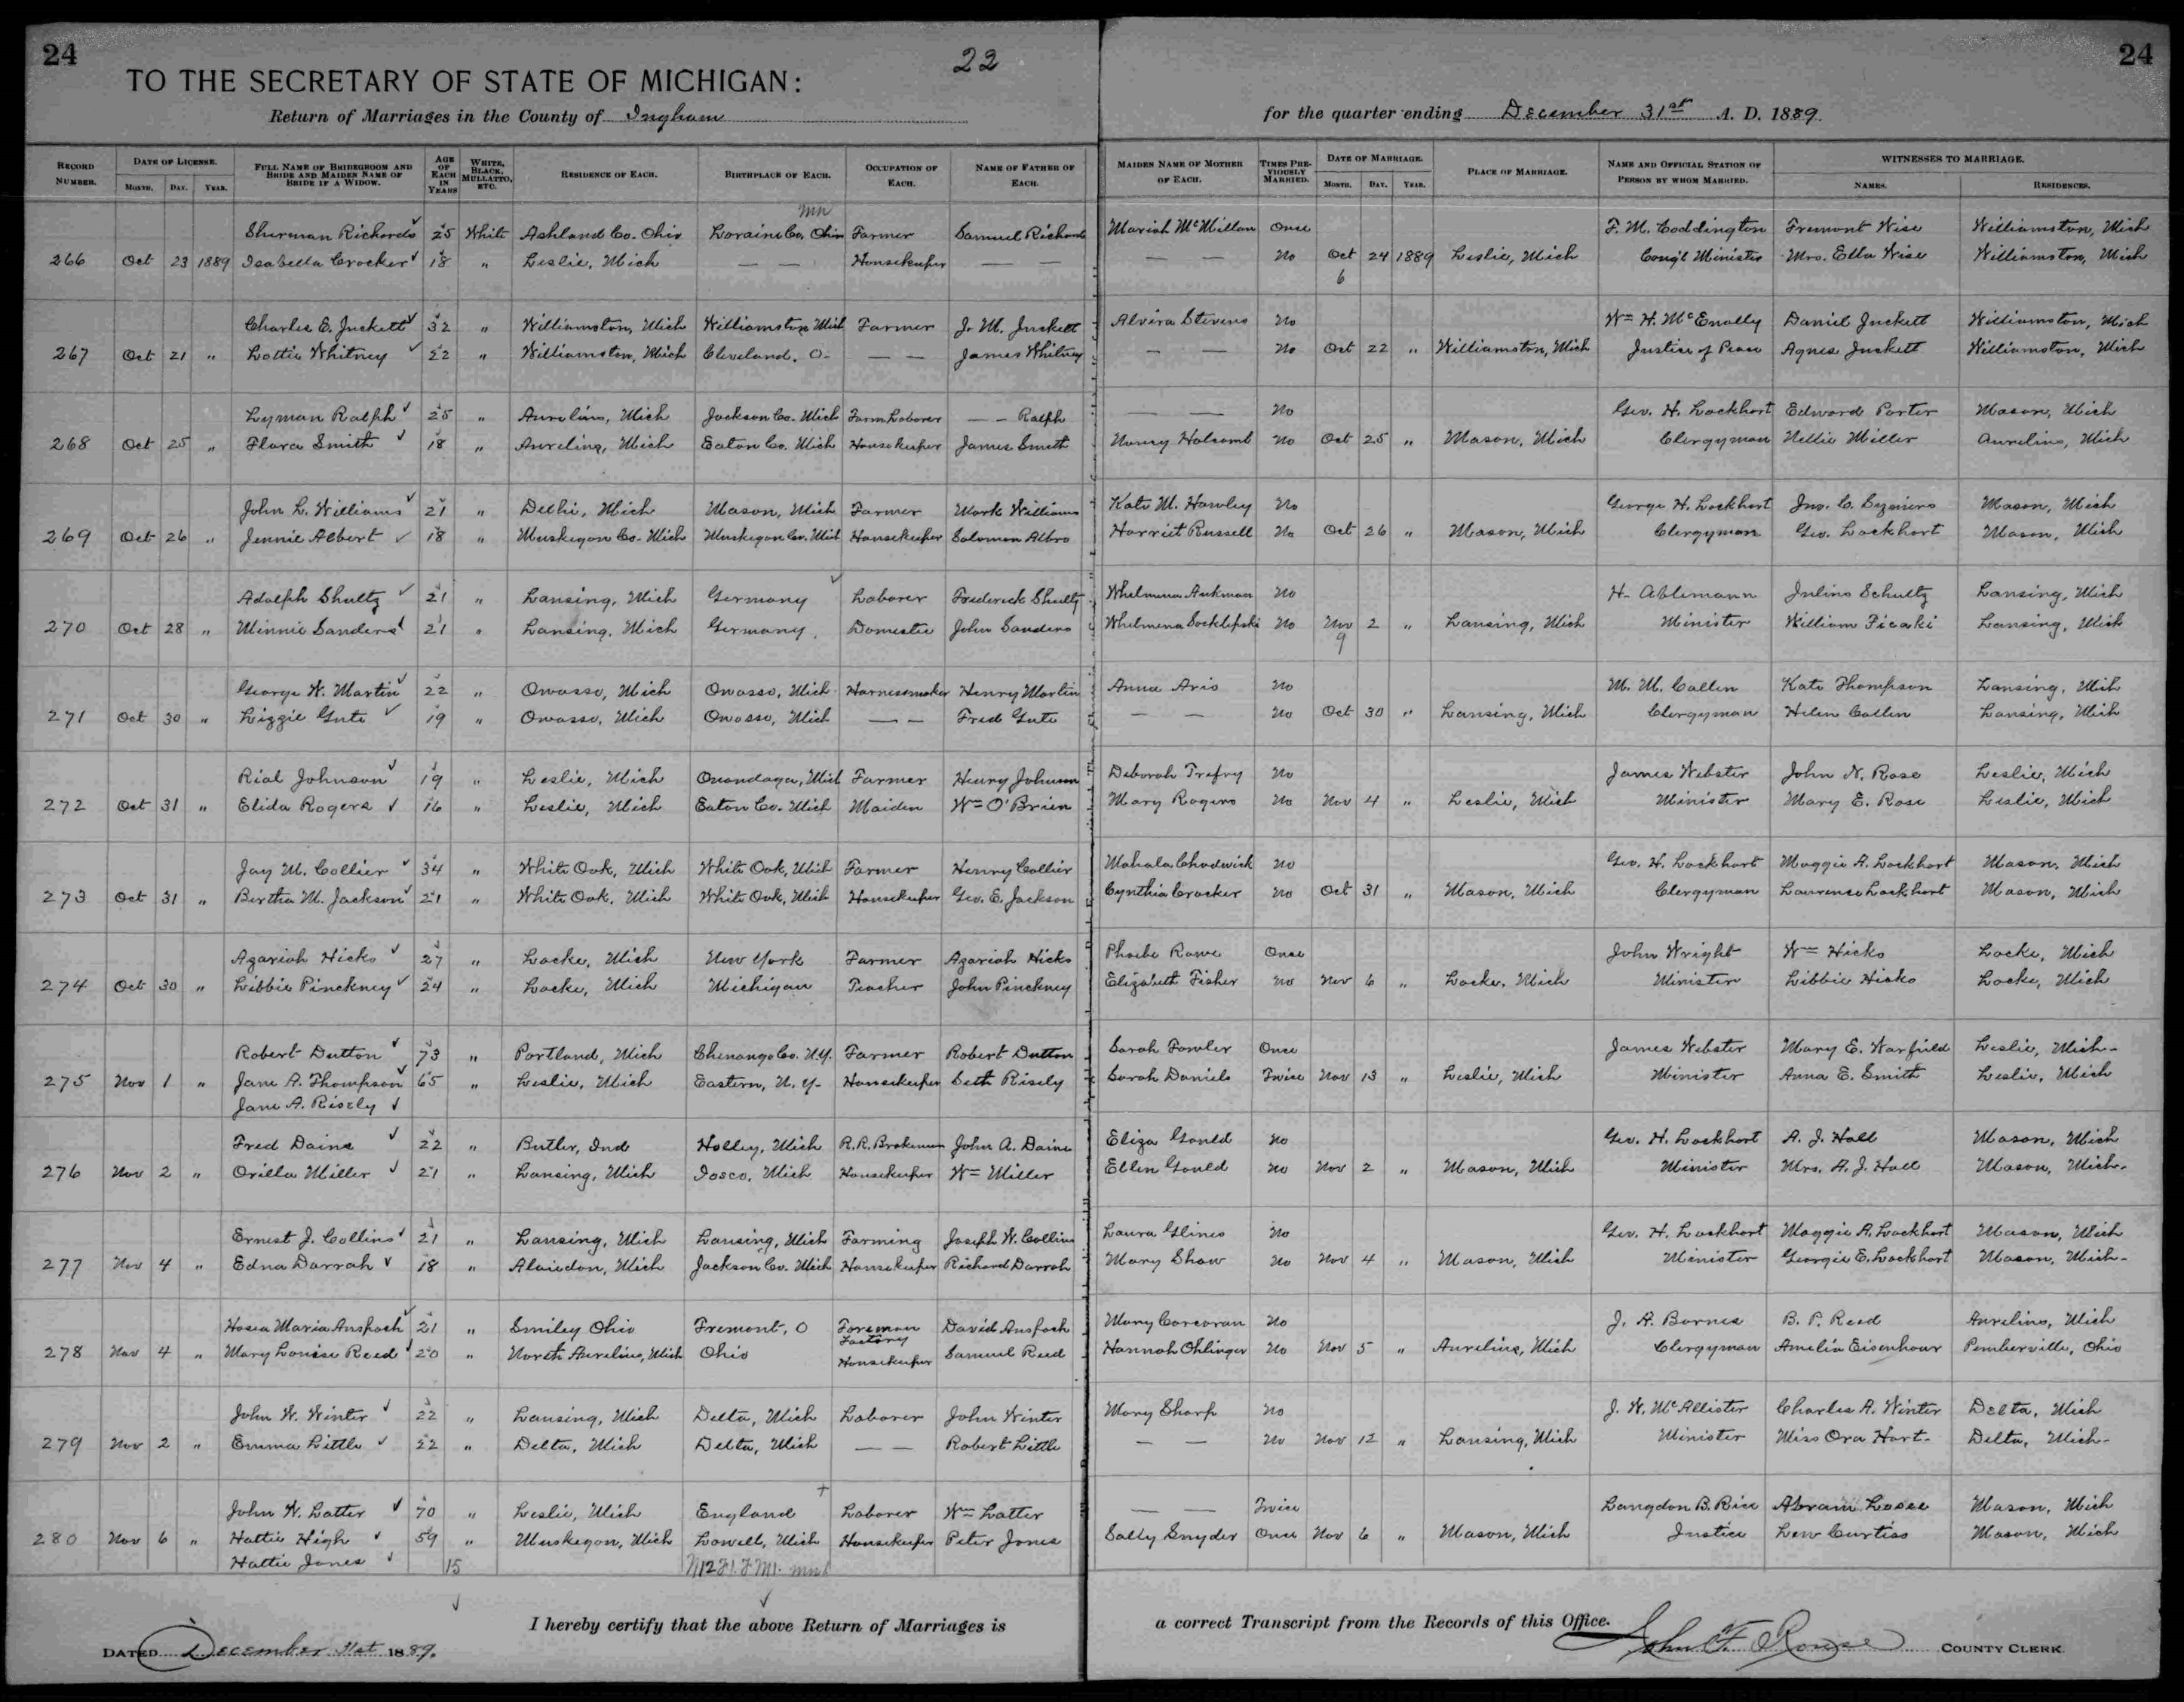 24
22
24
TO THE SECRETARY OF STATE OF MICHIGAN:
Return of Marriages in the County of Ingham for the quarter ending December 31st A. D. 1889.
RECORD NUMBER. DATE OF LICENSE. MONTH. DAY. YEAR. FULL NAME OF BRIDEGROOM AND BRIDE AND MAIDEN NAME OF BRIDE IF A WIDOW. AGE OF EACH IN YEARS WHITE, BLACK, MULLATTO, ETC. RESIDENCE OF EACH. BIRTHPLACE OF EACH. OCCUPATION OF EACH. NAME OF FATHER OF EACH. MAIDEN NAME OF MOTHER OF EACH. TIMES PREVIOUSLY MARRIED. DATE OF MARRIAGE. MONTH. DAY. YEAR. PLACE OF MARRIAGE. NAME AND OFFICIAL STATION OF PERSON BY WHOM MARRIED. WITNESSES TO MARRIAGE. NAMES. RESIDENCES.
Sherman Richards 25 White Ashland Co. Ohio Loraine Co, Ohio Farmer Samuel Richards Mariah McMillan Once F. M. Coddington Fremont Wise Williamston, Mich
266 Oct 23 1889 Isabella Crocker 18 " Leslie, Mich — — Housekeeper — — — — No Oct 24 1889 Leslie, Mich Cong'l Minister Mrs. Ella Wise Williamston, Mich
6
Charles E. Juckett 32 " Williamston, Mich Williamston Mich Farmer J. M. Juckett Alvira Stevens No Wm H. McEnally Daniel Juckett Williamston, Mich
267 Oct 21 " Lottie Whitney 22 " Williamston, Mich Cleveland, O- — — James Whitney — — No Oct 22 " Williamston, Mich Justice of Peace Agnes Juckett Williamston, Mich
Lyman Ralph 25 " Aurelius, Mich Jackson Co. Mich Farm Laborer — — Ralph — — No Geo. H. Lockhart Edward Porter Mason, Mich
268 Oct 25 " Flora Smith 18 " Aurelius, Mich Eaton Co. Mich Housekeeper James Smith Nancy Holcomb No Oct 25 " Mason, Mich Clergyman Nellie Miller Aurelius, Mich
John L. Williams 21 " Delhi, Mich Mason, Mich Farmer Mark Williams Kate M. Hawley No George H. Lockhart Jno. C. Mason, Mich
269 Oct 26 " Jennie Albert 18 " Muskegon Co. Mich Muskegon Co. Mich Housekeeper Solomon Albro Harriet Russell No Oct 26 " Mason, Mich Clergyman Geo. Lockhart Mason, Mich
Adolph Shultz 21 " Lansing, Mich Germany Laborer Frederick Shultz Whelmena No H. Ablemann Julius Schultz Lansing, Mich
270 Oct 28 " Minnie Sanders 21 " Lansing, Mich Germany, Domestic John Sanders Whelmena No Nov 2 " Lansing, Mich Minister William Picaki Lansing, Mich
9
George W. Martin 22 " Owosso, Mich Owosso, Mich Harnessmaker Henry Martin Anna Aris No M. M. Callen Kate Thompson Lansing, Mich
271 Oct 30 " Lizzie Gute 19 " Owosso, Mich Owosso, Mich — — Fred Gute — — No Oct 30 " Lansing, Mich Clergyman Helen Callen Lansing, Mich
Rial Johnson 19 " Leslie, Mich Onondaga, Mich Farmer Henry Johnson Deborah Trefry No James Webster John N. Rose Leslie, Mich
272 Oct 31 " Elida Rogers 16 " Leslie, Mich Eaton Co. Mich Maiden Wm O'Brien Mary Rogers No Nov 4 " Leslie, Mich Minister Mary E. Rose Leslie, Mich
Jay M. Collier 34 " White Oak, Mich White Oak, Mich Farmer Henry Collier Mahala Chadwick No Geo. H. Lockhart Maggie A. Lockhart Mason, Mich
273 Oct 31 " Bertha M. Jackson 21 " White Oak, Mich White Oak, Mich Housekeeper Geo. E. Jackson Cynthia Crocker No Oct 31 " Mason, Mich Clergyman Laurence Lockhart Mason, Mich
Azariah Hicks 27 " Locke, Mich New York Farmer Azariah Hicks Phoebe Rowe Once John Wright Wm Hicks Locke, Mich
274 Oct 30 " Libbie Pinckney 24 " Locke, Mich Michigan Teacher John Pinckney Elizabeth Fisher No Nov 6 " Locke, Mich Minister Libbie Hicks Locke, Mich
Robert Dutton 73 " Portland, Mich Chenango Co. N.Y. Farmer Robert Dutton Sarah Fowler Once James Webster Mary E. Warfield Leslie, Mich-
275 Nov 1 " Jane A. Thompson 65 " Leslie, Mich Eastern, N. Y- Housekeeper Seth Risely Sarah Daniels Twice Nov 13 " Leslie, Mich Minister Anna E. Smith Leslie, Mich
Jane A. Risely
Fred Daine 22 " Butler, Ind Holley, Mich R.R. Brakeman John A. Daine Eliza Gould No Geo. H. Lockhart A. J. Hall Mason, Mich
276 Nov 2 " Orilla Miller 21 " Lansing, Mich Iosco, Mich Housekeeper Wm Miller Ellen Gould No Nov 2 " Mason, Mich Minister Mrs. A. J. Hall Mason, Mich.
Ernest J. Collins 21 " Lansing, Mich Lansing, Mich Farming Joseph W. Collins Laura Glines No Geo. H. Lockhart Maggie A. Lockhart Mason, Mich
277 Nov 4 " Edna Darrah 18 " Alaiedon, Mich Jackson Co. Mich Housekeeper Richard Darrah Mary Shaw No Nov 4 " Mason, Mich Minister Georgie E. Lockhart Mason, Mich-
Hosea Maria Anspach 21 " Smiley Ohio Fremont, O Foreman Factory David Anspach Mary Corcoran No J. A. Barnes B. P. Reed Aurelius, Mich
278 Nov 4 " Mary Louise Reed 20 " North Aurelius, Mich Ohio Housekeeper Samuel Reed Hannah Ohlinger No Nov 5 " Aurelius, Mich Clergyman Amelia Eisenhour Pemberville, Ohio
John W. Winter 22 " Lansing, Mich Delta, Mich Laborer John Winter Mary Sharp No J. W. McAllister Charles A. Winter Delta, Mich
279 Nov 2 " Emma Little 22 " Delta, Mich Delta, Mich — — Robert Little — — No Nov 12 " Lansing, Mich Minister Miss Ora Hart- Delta, Mich-
John W. Latter 70 " Leslie, Mich England Laborer Wm Latter — — Twice Langdon B. Rice Abram Losee Mason, Mich
280 Nov 6 " Hattie High 59 " Muskegon, Mich Lowell, Mich Housekeeper Peter Jones Sally Snyder Once Nov 6 " Mason, Mich Justice Lew Curtiss Mason, Mich
Hattie Jones 15
I hereby certify that the above Return of Marriages is a correct Transcript from the Records of this Office.
DATED December 31st 1889. John F. Rouse COUNTY CLERK.